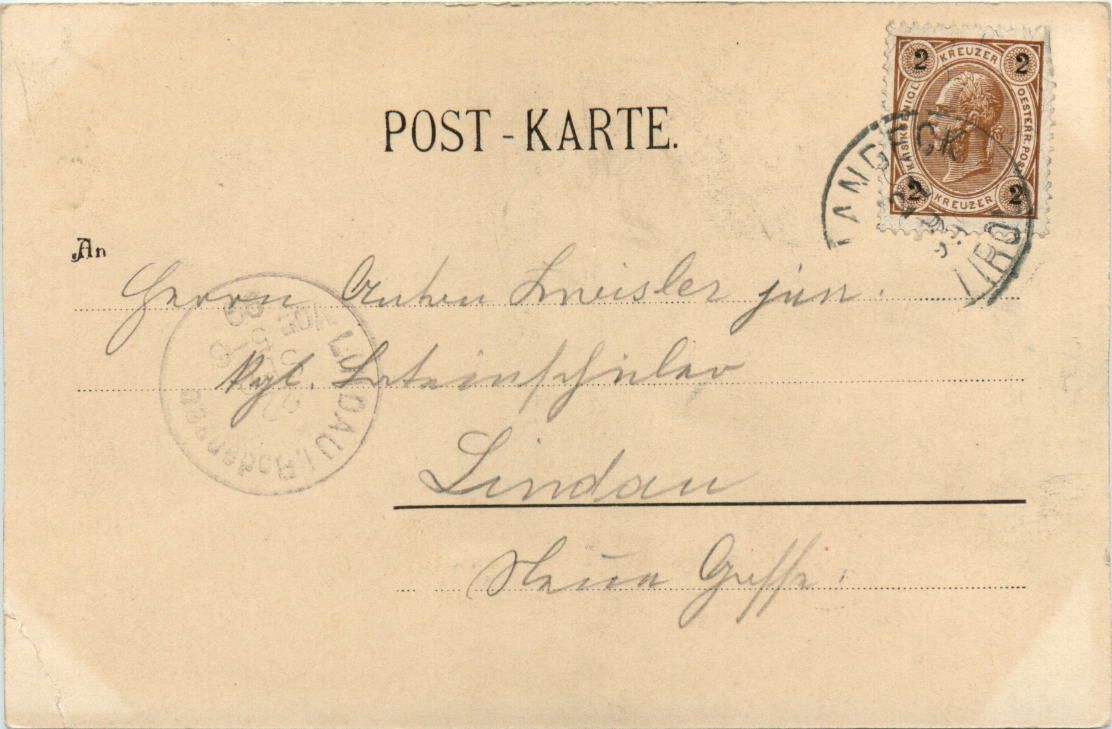 POST-KARTE.
2 KREUZER 2
KAIS. KÖNIGL. OESTERR. POST
2 KREUZER 2
LANDECK
TIROL
An
Herrn Anton jun.
kgl. Lateinschüler
LINDAU i. Bodensee
Lindau
Neue Gasse.